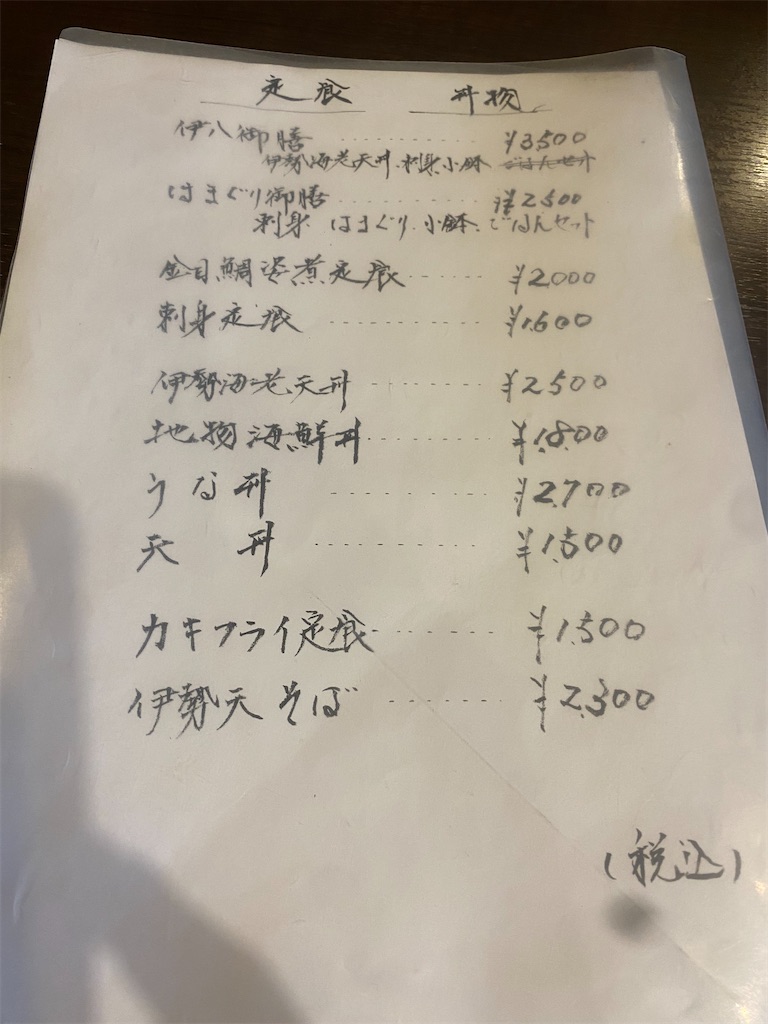 定食 丼物
伊八御膳 ¥3,500
伊勢海老天丼、刺身、小鉢
はまぐり御膳 ¥2,500
刺身、はまぐり、小鉢、ごはんセット
金目鯛姿煮定食 ¥2,000
刺身定食 ¥1,600
伊勢海老天丼 ¥2,500
地物海鮮丼 ¥1,800
うな丼 ¥2,700
天丼 ¥1,500
カキフライ定食 ¥1,500
伊勢天そば ¥2,300
(税込)